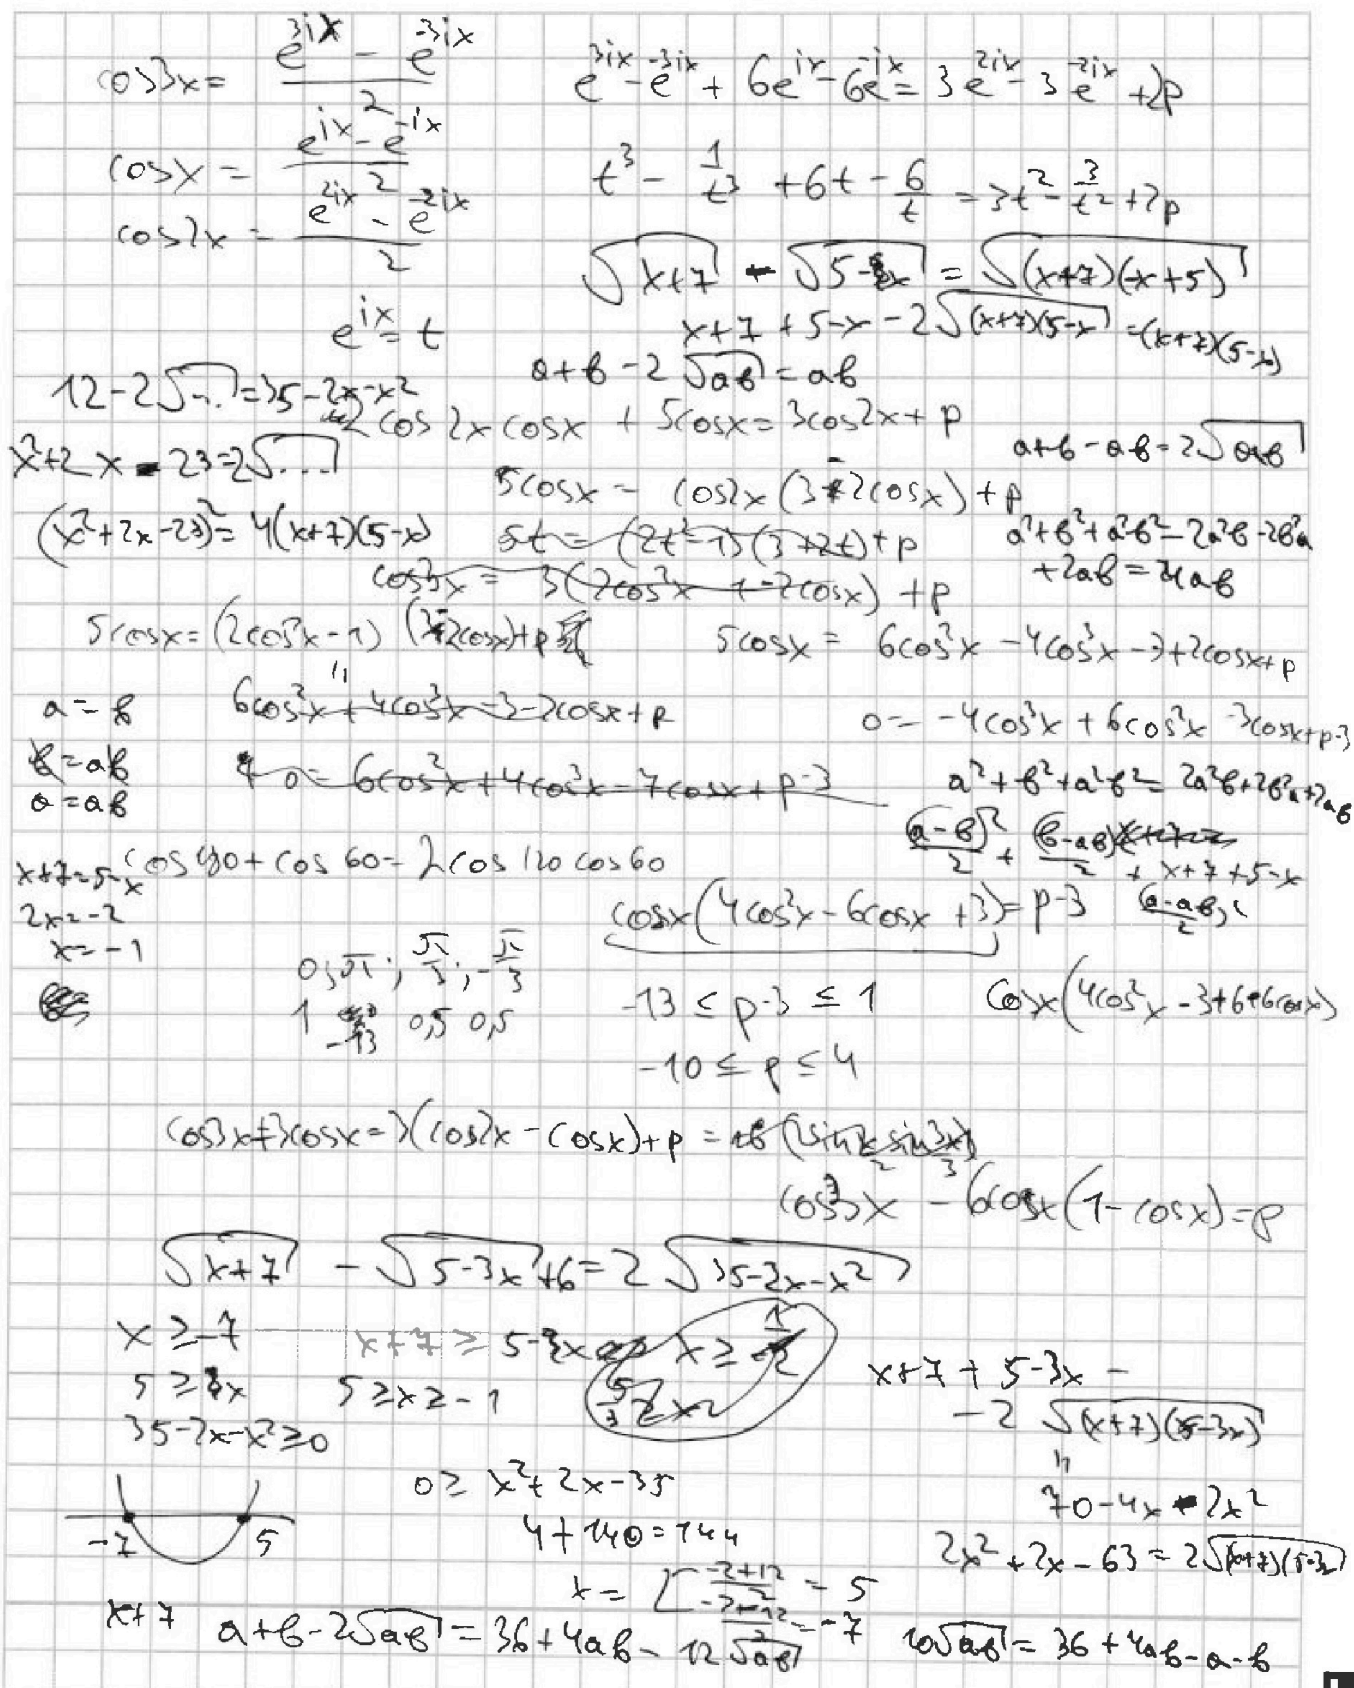 cos3x = (e^{3ix} - e^{-3ix})/2
e^{3ix} - e^{-3ix} + 6e^{ix} - 6e^{-ix} = 3e^{2ix} - 3e^{-2ix} + 2p
cosx = (e^{ix} - e^{-ix})/2
t³ - 1/t³ + 6t - 6/t = 3t² - 3/t² + 2p
cos2x = (e^{2ix} - e^{-2ix})/2
√(x+7) - √(5-x) = √((x+7)(-x+5))
e^{ix} = t
x+7+5-x-2√((x+7)(5-x)) = (x+7)(5-x)
a+b-2√(ab) = ab
12-2√... = 35-2x-x²
2cos2x cosx + 5cosx = 3cos2x + p
a+b-ab = 2√(ab)
x²+2x-23 = 2√...
5cosx = cos2x(3-2cosx)+p
(x²+2x-23)² = 4(x+7)(5-x)
5t = (2t²-1)(3+2t)+p
a²+b²+a²b²-2a²b-2b²a
+2ab = 4ab
5cosx = (2cos²x-1)(3-2cosx)+p
5cosx = 6cos²x-4cos³x-3+2cosx+p
a = b
6cos²x+4cos³x-3-2cosx+p
0 = -4cos³x+6cos²x-3cosx+p-3
b = ab
0 = 6cos²x+4cos³x-7cosx+p-3
a²+b²+a²b² = 2a²b+2b²a+2ab
a = ab
(a-b)²/2 + (b-ab)/2
+ x+7+5-x
x+7=5-x
cos180+cos60=2cos120cos60
2x=-2
cosx(4cos²x-6cosx+3)=p-3
(a-ab)²/2
x=-1
0; π; π/3; -π/3
1 -13 0,5 0,5
-13 ≤ p-3 ≤ 1
cosx(4cos²x-3+6-6cosx)
-10 ≤ p ≤ 4
cos3x+3cosx=3(cos2x-cosx)+p
cos3x - 6cosx(1-cosx)=p
√(x+7) - √(5-3x) + 6 = 2√(35-2x-x²)
x ≥ -7
x+7 ≥ 5-3x
x ≥
5 ≥ x
5 ≥ x ≥ -1
x+7+5-3x-
-2√((x+7)(5-3x))
35-2x-x² ≥ 0
0 ≥ x²+2x-35
70-4x-2x²
-7 5
4+140=144
2x²+2x-63=2√((x+7)(5-3x))
x = [(-2+12)/2 = 5
(-2-12)/2 = -7
x+7
a+b-2√(ab) = 36+4ab-12√(ab)
10√(ab) = 36+4ab-a-b